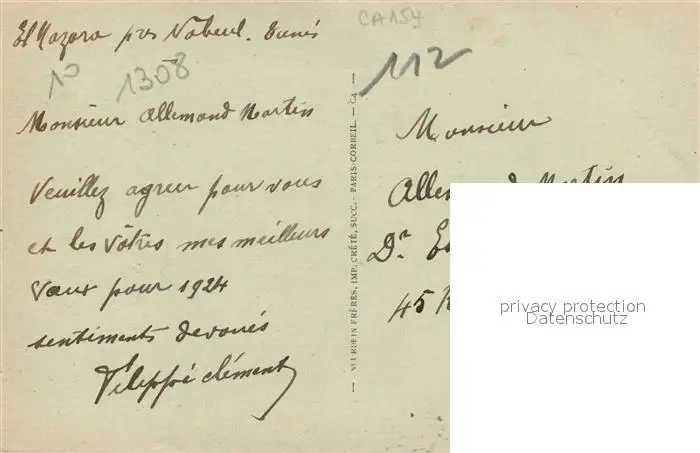 El Mazara pres Nabeul. Tunis
10
1308
Monsieur Allemand Martin
Veuillez agreer pour vous
et les Vôtres mes meilleurs
Vœux pour 1924
sentiments devoués
Clément
CA154
112
NEURDEIN FRÈRES, IMP. CRÉTÉ, SUCC. - PARIS-CORBEIL. — C4 —
Monsieur
Martin
Dr
45
privacy protection
Datenschutz